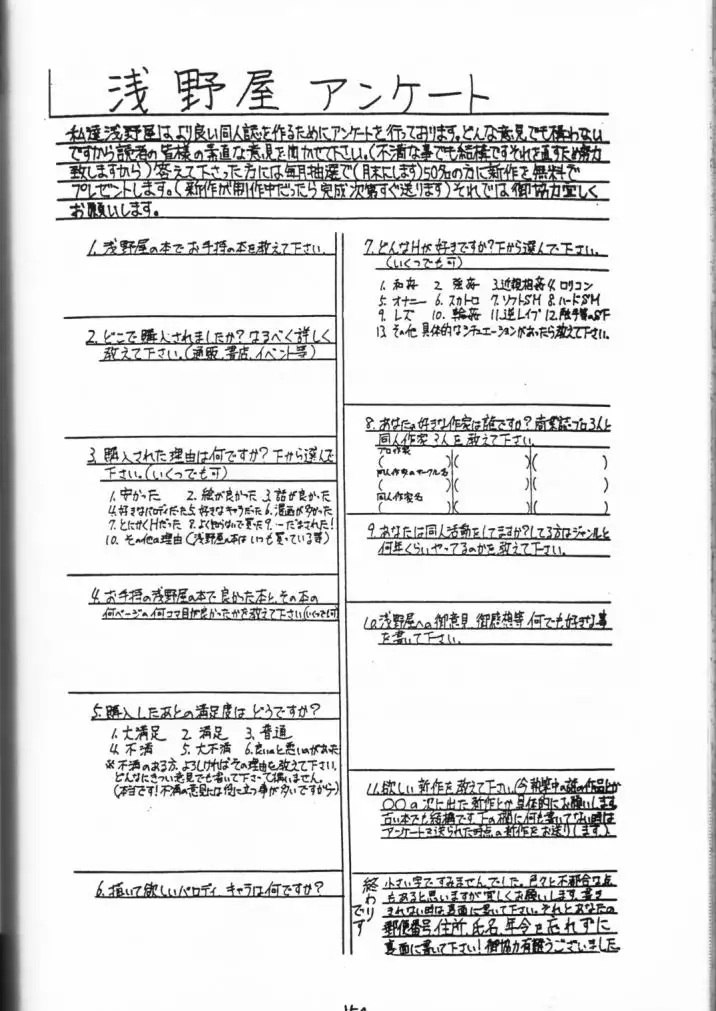 浅野屋 アンケート
私達浅野屋はより良い同人誌を作るためにアンケートを行っております。どんな意見でも構わない
ですから読者の皆様の素直な意見を聞かせて下さい。(不満な事でも結構ですそれを直すため努力
致しますから)答えて下さった方には毎月抽選で(月末にします)50名の方に新作を無料で
プレゼントします。(新作が制作中だったら完成次第すぐ送ります)それでは御協力宜しく
お願いします。
1. 浅野屋の本でお手持の本を教えて下さい。
2. どこで購入されましたか?なるべく詳しく
教えて下さい。(通販、書店、イベント等)
3. 購入された理由は何ですか?下から選んで
下さい。(いくつでも可)
1. 安かった 2. 絵が良かった 3. 話が良かった
4. 好きなパロディだった 5. 好きなキャラだった 6. 漫画が多かった
7. とにかくHだった 8. よく知らないで買った 9. 一だまされた!
10. その他の理由(浅野屋の本はいつも買っている等)
4. お手持の浅野屋の本で良かった本と、その本の
何ページの何コマ目が良かったかを教えて下さい(いくつでも可)
5. 購入したあとの満足度はどうですか?
1. 大満足 2. 満足 3. 普通
4. 不満 5. 大不満 6. 良いのと悪いのがあった
※不満のある方、よろしければその理由を教えて下さい。
どんなにきつい意見でも書いて下さって構いません。
(本当です!不満の意見には役に立つ事が多いですから)
6. 描いて欲しいパロディ、キャラは何ですか?
7. どんなHが好きですか?下から選んで下さい。
(いくつでも可)
1. 和姦 2. 強姦 3. 近親相姦 4. ロリコン
5. オナニー 6. スカトロ 7. ソフトSM 8. ハードSM
9. レズ 10. 輪姦 11. 逆レイプ 12. 触手等のSF
13. その他 具体的なシチュエーションがあったら教えて下さい。
8. あなたの好きな作家は誰ですか?商業誌・プロ3人と
同人作家3人を教えて下さい。
プロ作家 ( )( )( )
同人作家のサークル名
同人作家名 ( )( )( )
9. あなたは同人活動をしてますか?してる方はジャンルと
何年くらいやってるのかを教えて下さい。
10. 浅野屋への御意見、御感想等何でも好きな事
を書いて下さい。
11. 欲しい新作を教えて下さい。(今執筆中の話の作品とか
○○の次に出た新作とか具体的にお願いします
古い本でも結構です。下の欄に何も書いてない時は
アンケートで送られた時点の新作をお送りします。)
終わりです
小さい字ですみませんでした。色々と不都合な点
もあると思いますが宜しくお願いします。書き
きれない時は裏面に書いて下さい。それとあなたの
郵便番号、住所、氏名、年令を忘れずに
裏面に書いて下さい!御協力有難うございました